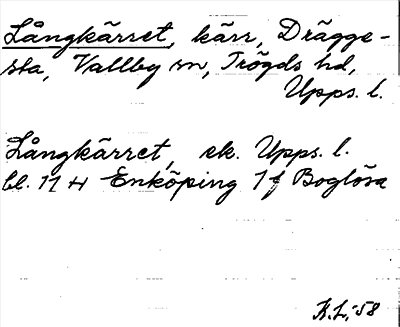 Långkärret, kärr, Drägge-
sta, Vallby sn, Trögds hd,
Upps. l.
Långkärret, ek. Upps. l.
bl. 11 H Enköping 1 f Boglösa
K.L. -58